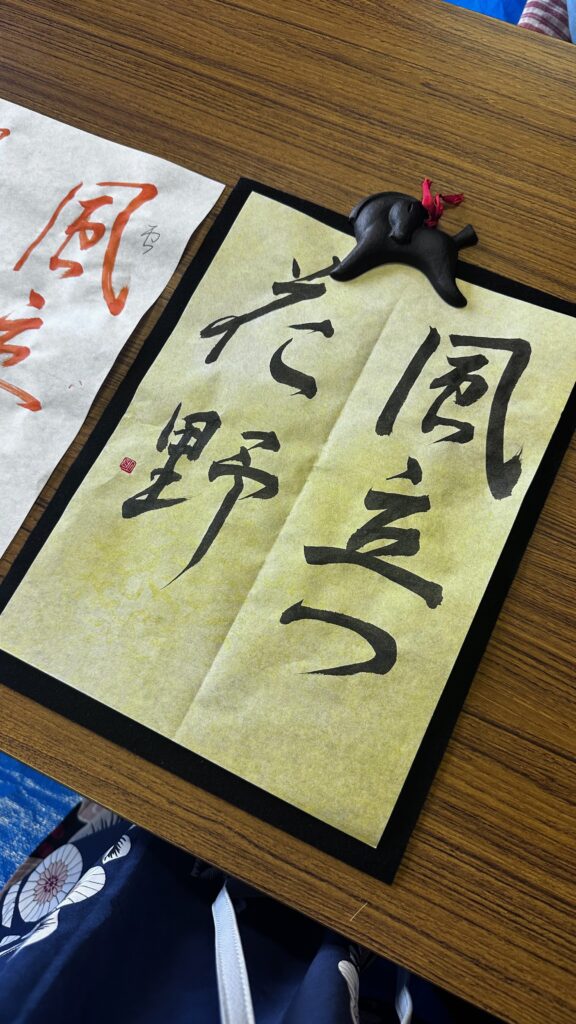 風立つ
花野
風立